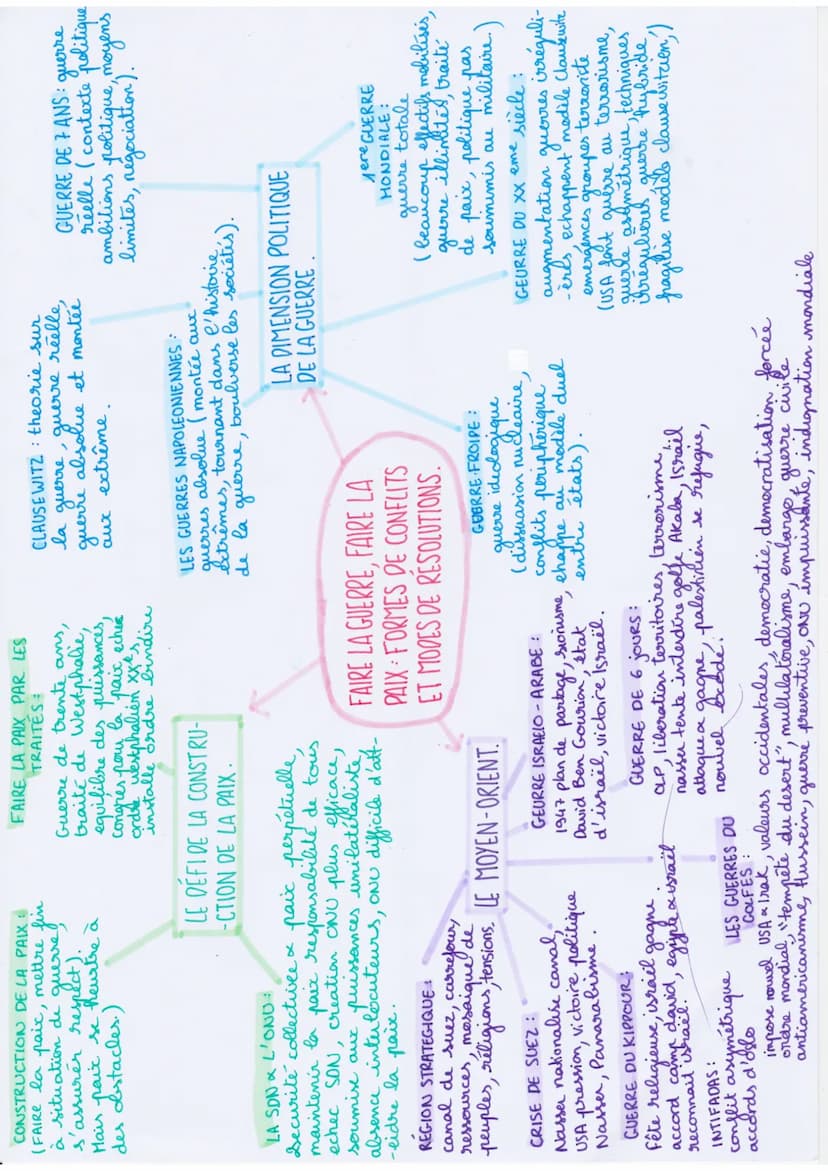 CONSTRUCTION DE LA PAIX :
(FAIRE la paix, mettre fin
à situation de guerre,
s'assurer respect).
Mais paix se heurtre à
des obstacles)
FAIRE LA PAIX PAR LES
TRAITÉS :
Guerre de trente ans,
traité de Westphalie,
équilibre des puissances,
Congres pour la paix echec
ordre Westphalien XXe,
installe ordre
CLAUSEWITZ : theorie sur
la guerre, guerre réelle,
guerre absolue et montée
aux extrême.
GUERRE DE 7 ANS : guerre
réelle (contexte politique
ambitions politique, moyens
limités, négociation).
LES GUERRES NAPOLEONIENNES :
guerres absolue (montée aux
extrêmes, tournant dans l'histoire
de la guerre, boulverse les sociétés).
LE DÉFI DE LA CONSTRU-
-CTION DE LA PAIX.
LA DIMENSION POLITIQUE
DE LA GUERRE.
LA SDN & L'ONU :
securité collective & paix perpétuelle,
maintenir la paix responsabilité de tous
echec SDN, creation ONU plus efficace,
soumise aux puissances unilatéraliste,
absence interlocuteurs, ONU difficile d'att-
-eidre la paix.
FAIRE LA GUERRE, FAIRE LA
PAIX : FORMES DE CONFLITS
ET MODES DE RÉSOLUTIONS.
1ere GUERRE
MONDIALE :
guerre totale
(beaucoup effectifs mobilisés,
guerre illimités, traité
de paix, politique pas
soumis au militaire.)
GUERRE FROIDE :
guerre idéologique
(dissuasion nucléaire,
conflits périphérique
echappe au modèle duel
entre états).
GEURRE DU XX eme siècle :
augmentation guerres irréguli-
-ères, echappent modèle Clausewitz
emergences groupes terroriste
(USA font guerre au terrorisme,
guerre asymétrique, techniques
irrégulières, guerre hybride
fragilise modèls clausewitzien,)
RÉGION STRATEGIQUE :
canal de suez, carrefour,
ressources, mosaïque de
peuples, réligions, tensions,
LE MOYEN-ORIENT.
CRISE DE SUEZ :
Nasser nationalise canal,
USA pression, victoire politique
Nasser, Panarabisme.
GEURRE ISRAELO-ARABE :
1947 plan de partage, sionisme,
David Ben Gourion, état
d'israël, victoire Israël.
GUERRE DU KIPPOUR :
Fête religieuse, israël gagne
accord camp david, egypte & israël
reconnait israël.
GUERRE DE 6 JOURS :
OLP, liberation territoires, terrorisme,
nasser tente interdire golfe Akaba, Israël
attaque & gagne, palestidien se refugie,
nouvel
INTIFADAS :
conflit assymétrique
accords d'Oslo
LES GUERRES DU
GOLFES :
impose nouvel USA & Irak, valeurs occidentales, democratie, democratisation forcée
ordre mondial, "tempête du desert", mulilatéralisme, embargo, guerre civile
antiaméricanisme, Hussein, guerre preventive, ONU impuissante, indignation mondiale